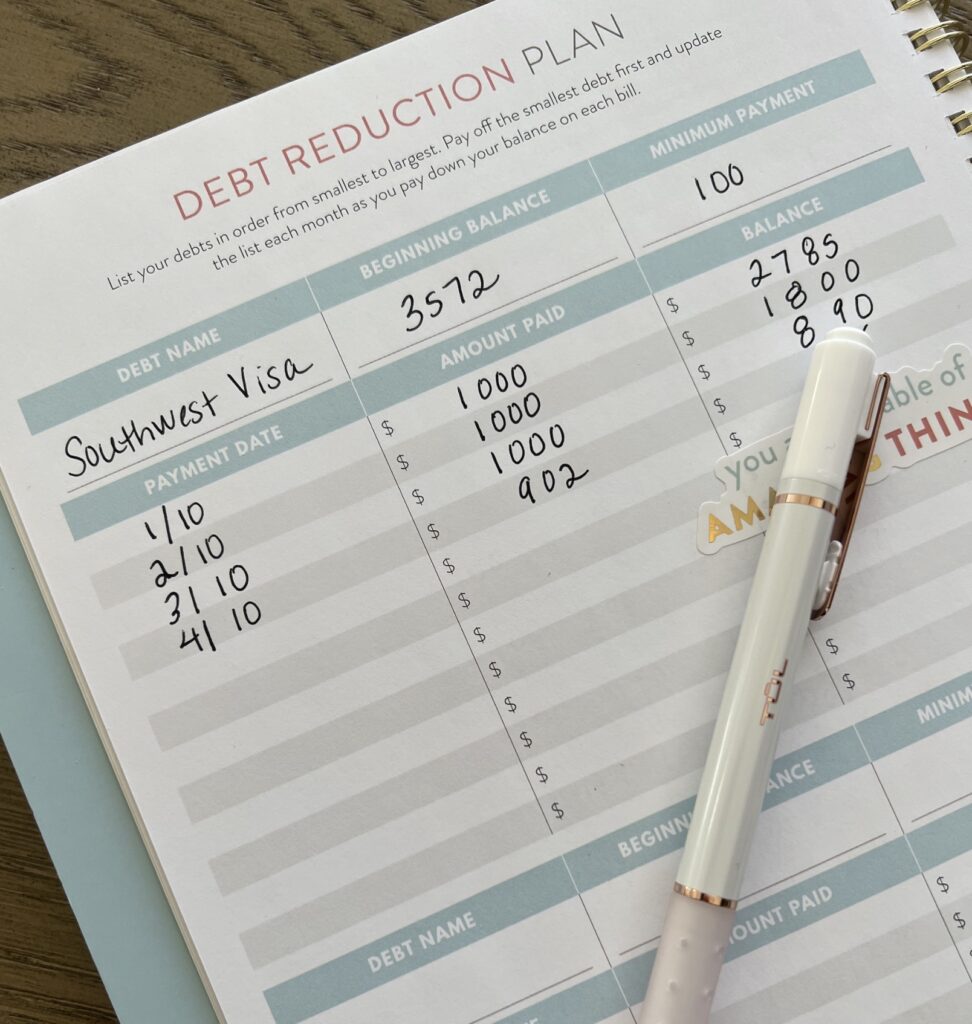 DEBT REDUCTION PLAN
List your debts in order from smallest to largest. Pay off the smallest debt first and update
the list each month as you pay down your balance on each bill.
DEBT NAME BEGINNING BALANCE MINIMUM PAYMENT
Southwest Visa 3572 100
PAYMENT DATE AMOUNT PAID BALANCE
1/10 $ 1000 $ 2785
2/10 $ 1000 $ 1800
3/10 $ 1000 $ 890
4/10 $ 902 $
$ $
$
$
$
$
$
$ $
$ $
you able of
THIN
DEBT NAME
MINIM
OUNT PAID
$
$